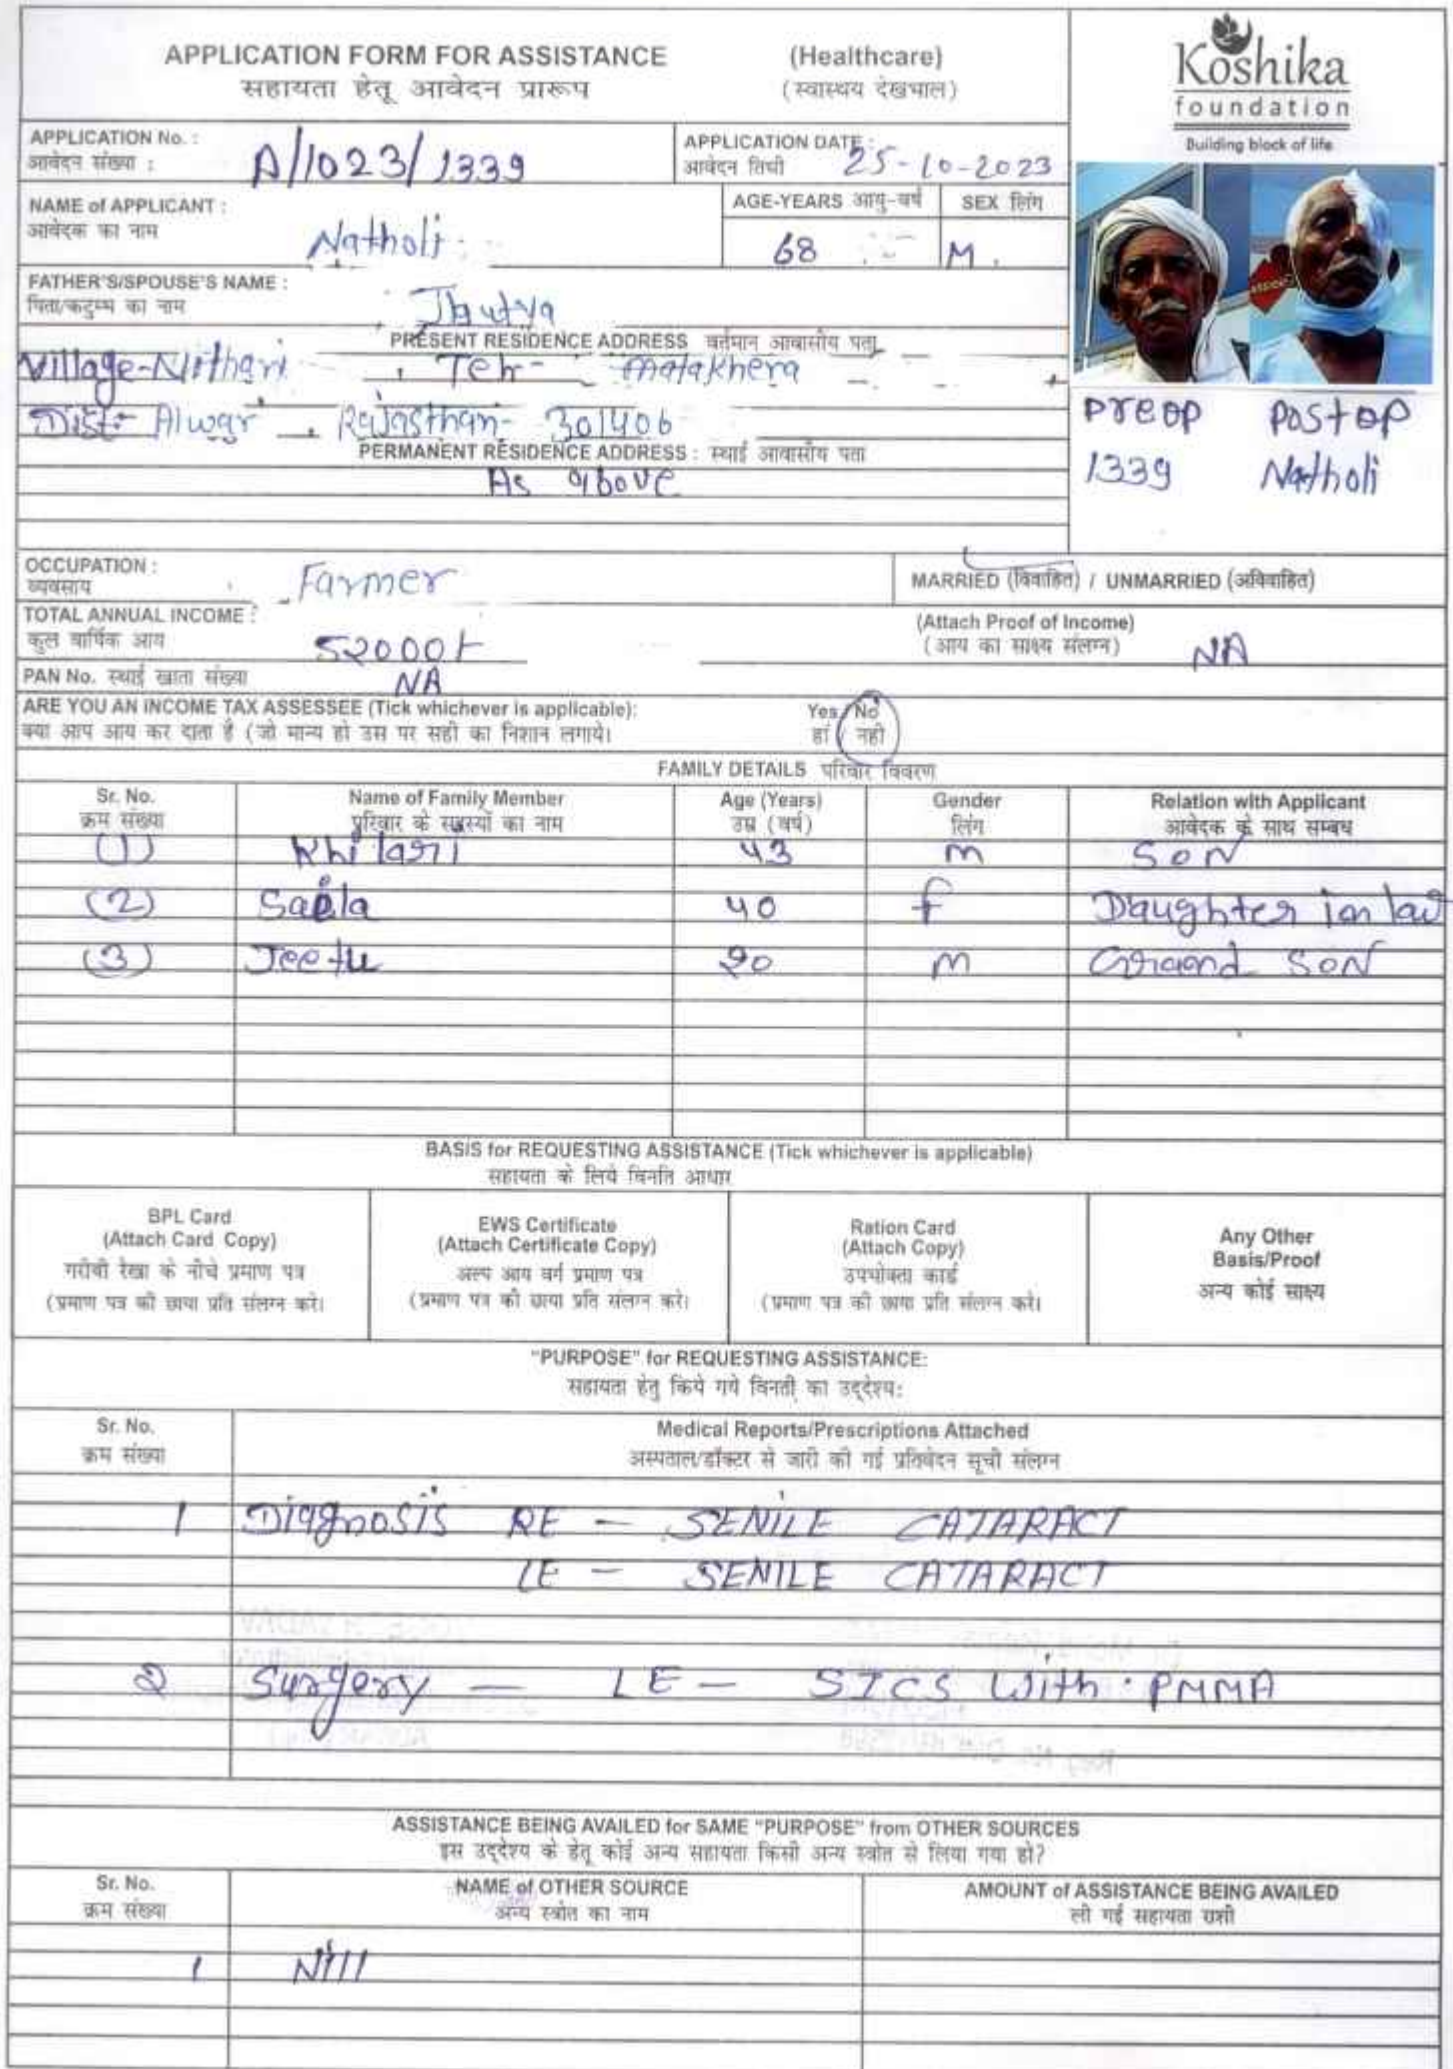 APPLICATION FORM FOR ASSISTANCE (Healthcare)
सहायता हेतू आवेदन प्रारूप (स्वास्थय देखभाल)
Koshika
foundation
Building block of life
APPLICATION No. : A/1023/1339 APPLICATION DATE : 25-10-2023
आवेदन संख्या : आवेदन तिथी
NAME of APPLICANT : Natholi AGE-YEARS आयु-वर्ष SEX लिंग
आवेदक का नाम 68 M.
FATHER'S/SPOUSE'S NAME :
पिता/कटुम्ब का नाम
PRESENT RESIDENCE ADDRESS वर्तमान आवासीय पता
Village-Nithari, Teh- Malakhera
Dist- Alwar, Rajasthan- 301406
PERMANENT RESIDENCE ADDRESS : स्थाई आवासीय पता
As above
Preop Postop
1339 Natholi
OCCUPATION : Farmer MARRIED (विवाहित) / UNMARRIED (अविवाहित)
व्यवसाय
TOTAL ANNUAL INCOME : (Attach Proof of Income)
कुल वार्षिक आय 52000/- (आय का साक्ष्य संलग्न) NA
PAN No. स्थाई खाता संख्या NA
ARE YOU AN INCOME TAX ASSESSEE (Tick whichever is applicable): Yes/No
क्या आप आय कर दाता है (जो मान्य हो उस पर सही का निशान लगाये। हां / नही
FAMILY DETAILS परिवार विवरण
Sr. No. Name of Family Member Age (Years) Gender Relation with Applicant
क्रम संख्या परिवार के सदस्यों का नाम उम्र (वर्ष) लिंग आवेदक के साथ सम्बध
(1) Khilari 43 m SON
(2) 40 f Daughter in law
(3) Jeetu 20 m Graand SON
BASIS for REQUESTING ASSISTANCE (Tick whichever is applicable)
सहायता के लिये विनति आधार
BPL Card
(Attach Card Copy)
गरीबी रेखा के नीचे प्रमाण पत्र
(प्रमाण पत्र की छाया प्रति संलग्न करे।
EWS Certificate
(Attach Certificate Copy)
अल्प आय वर्ग प्रमाण पत्र
(प्रमाण पत्र की छाया प्रति संलग्न करे।
Ration Card
(Attach Copy)
उपभोक्ता कार्ड
(प्रमाण पत्र की छाया प्रति संलग्न करे।
Any Other
Basis/Proof
अन्य कोई साक्ष्य
"PURPOSE" for REQUESTING ASSISTANCE:
सहायता हेतु किये गये विनती का उद्देश्य:
Sr. No. Medical Reports/Prescriptions Attached
क्रम संख्या अस्पताल/डॉक्टर से जारी की गई प्रतिवेदन सूची संलग्न
1 Diagnosis RE - SENILE CATARACT
LE - SENILE CATARACT
2 Surgery - LE - SICS With PMMA
ASSISTANCE BEING AVAILED for SAME "PURPOSE" from OTHER SOURCES
इस उद्देश्य के हेतू कोई अन्य सहायता किसी अन्य स्त्रोत से लिया गया हो?
Sr. No. NAME of OTHER SOURCE AMOUNT of ASSISTANCE BEING AVAILED
क्रम संख्या अन्य स्त्रोत का नाम ली गई सहायता राशी
1 Nill